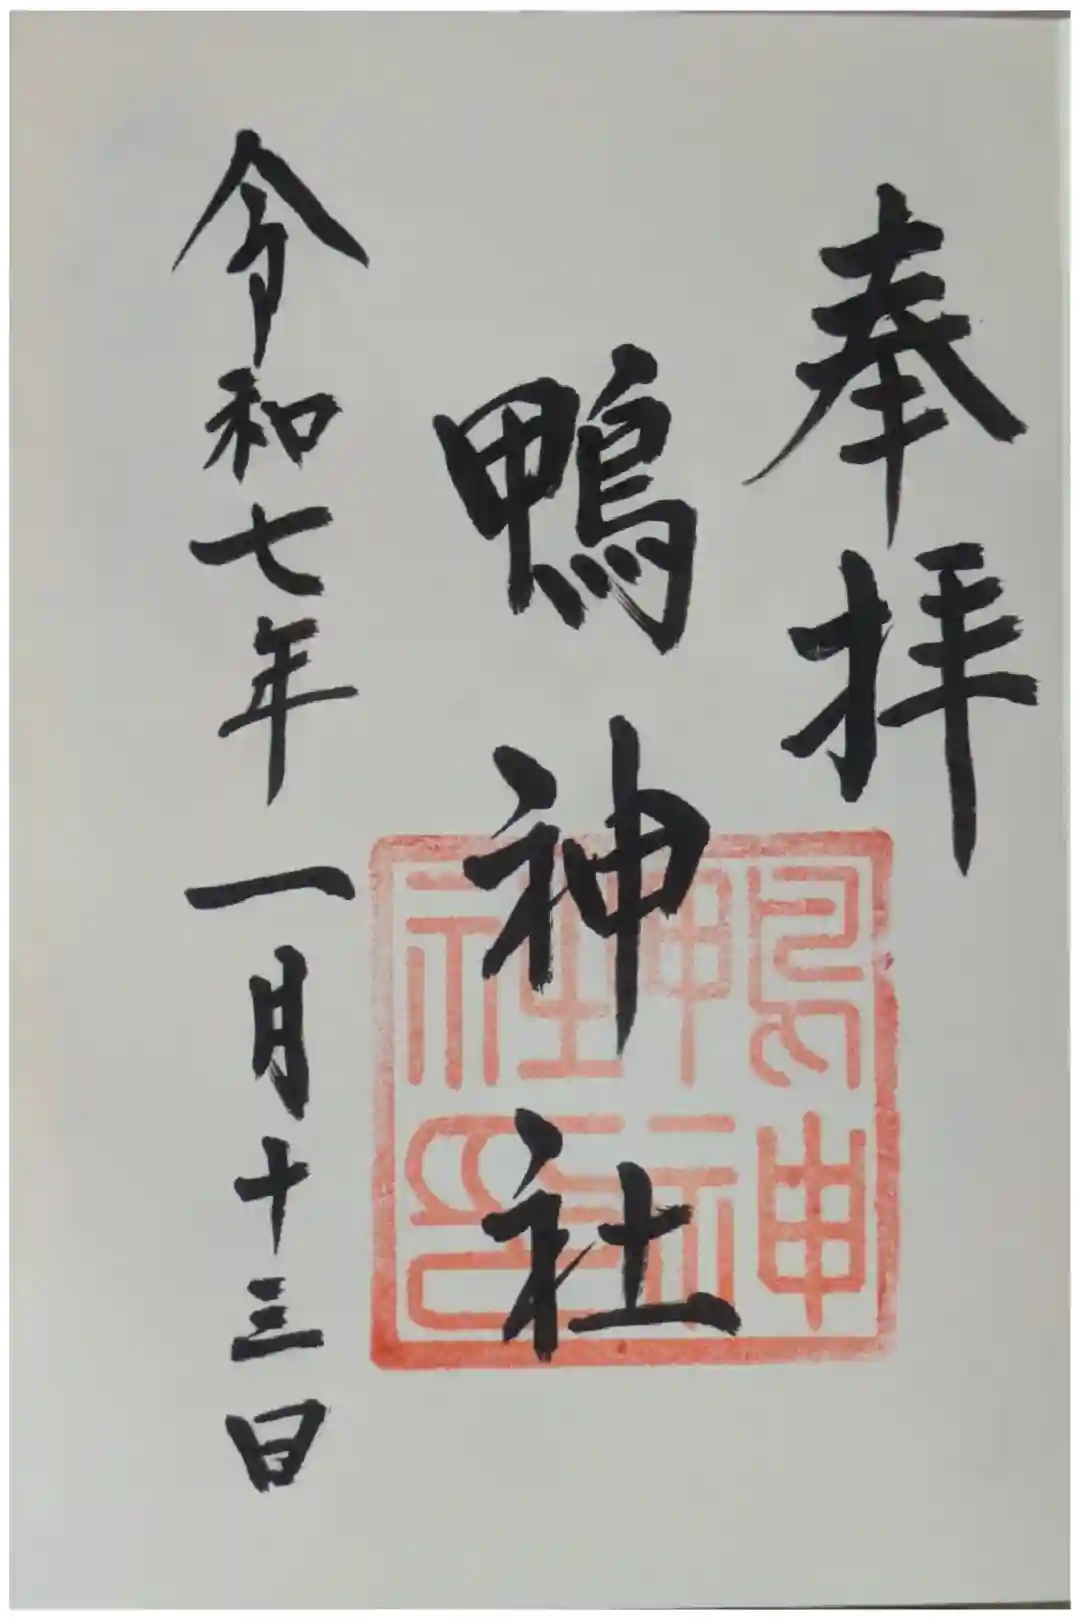 奉拝
鴨神社
鴨神
神社
印
令和七年一月十三日